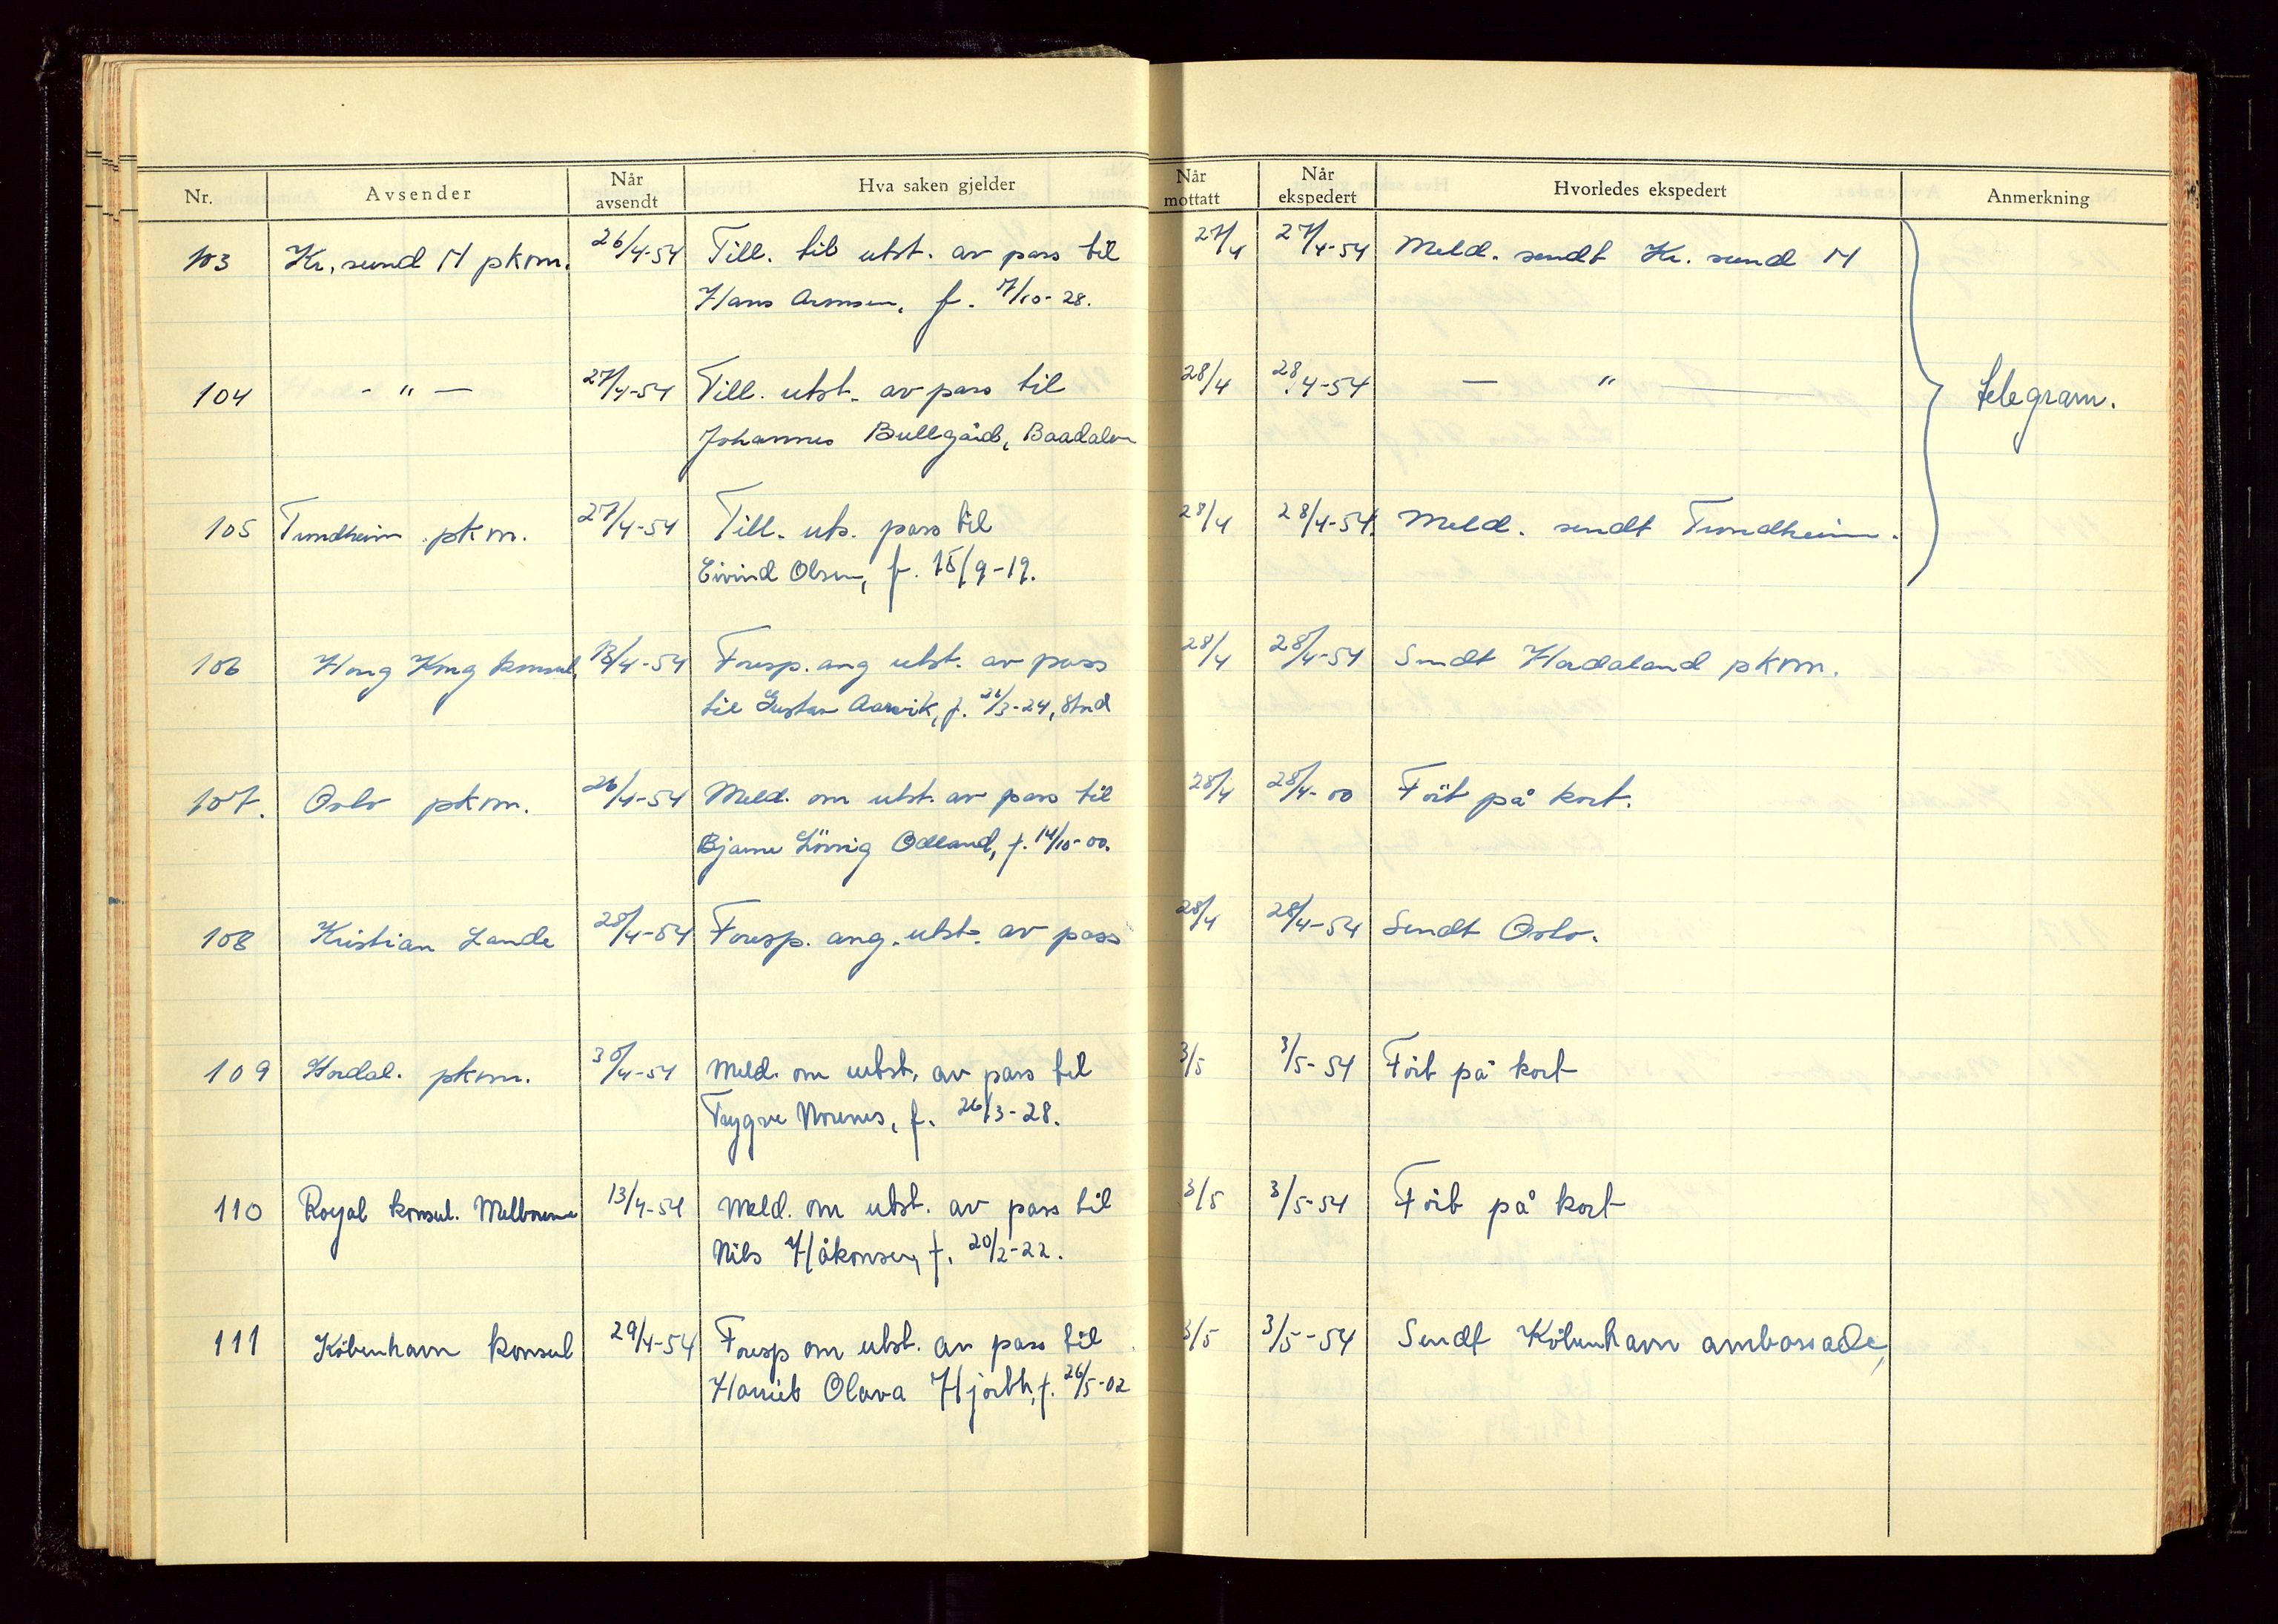 Nr. Avsender Når avsendt Hva saken gjelder Når mottatt Når ekspedert Hvorledes ekspedert Anmerkning
103 Kr. sund N pkm. 26/4-54 Till. til utst. av pass til 27/4 27/4-54 Meld. sendt Kr. sund N
Hans f. 7/10-28.
104 - " - 27/4-54 Till. utst. av pass til 28/4 28/4-54 - " - telegram.
Johannes Bullgård, Baadalen
105 Trondheim pkm. 27/4-54 Till. uts. pass til 28/4 28/4-54 Meld. sendt Trondheim.
Eivind Olsen, f. 15/9-19.
106 Hong Kong konsul. 13/4-54 Foresp. ang utst. av pass 28/4 28/4-54 Sendt Hordaland pkm.
til Gustav Aarvik, f. 26/3-24, Stord
107. Oslo pkm. 26/4-54 Meld. om utst. av pass til 28/4 28/4-00 Ført på kort.
Bjarne Odland, f. 14/10-00.
108 Kristian Lande 28/4-54 Foresp. ang. utst. av pass 28/4 28/4-54 Sendt Oslo.
109 Hordal. pkm. 30/4-54 Meld. om utst. av pass til 3/5 3/5-54 Ført på kort
Trygve f. 26/3-28.
110 Royal konsul. Melbourne 13/4-54 Meld. om utst. av pass til 3/5 3/5-54 Ført på kort
Nils Håkonsen, f. 20/2-22.
111 København konsul 29/4-54 Foresp om utst. av pass til 3/5 3/5-54 Sendt København ambassade,
Harriet Olava Hjorth, f. 26/5-02